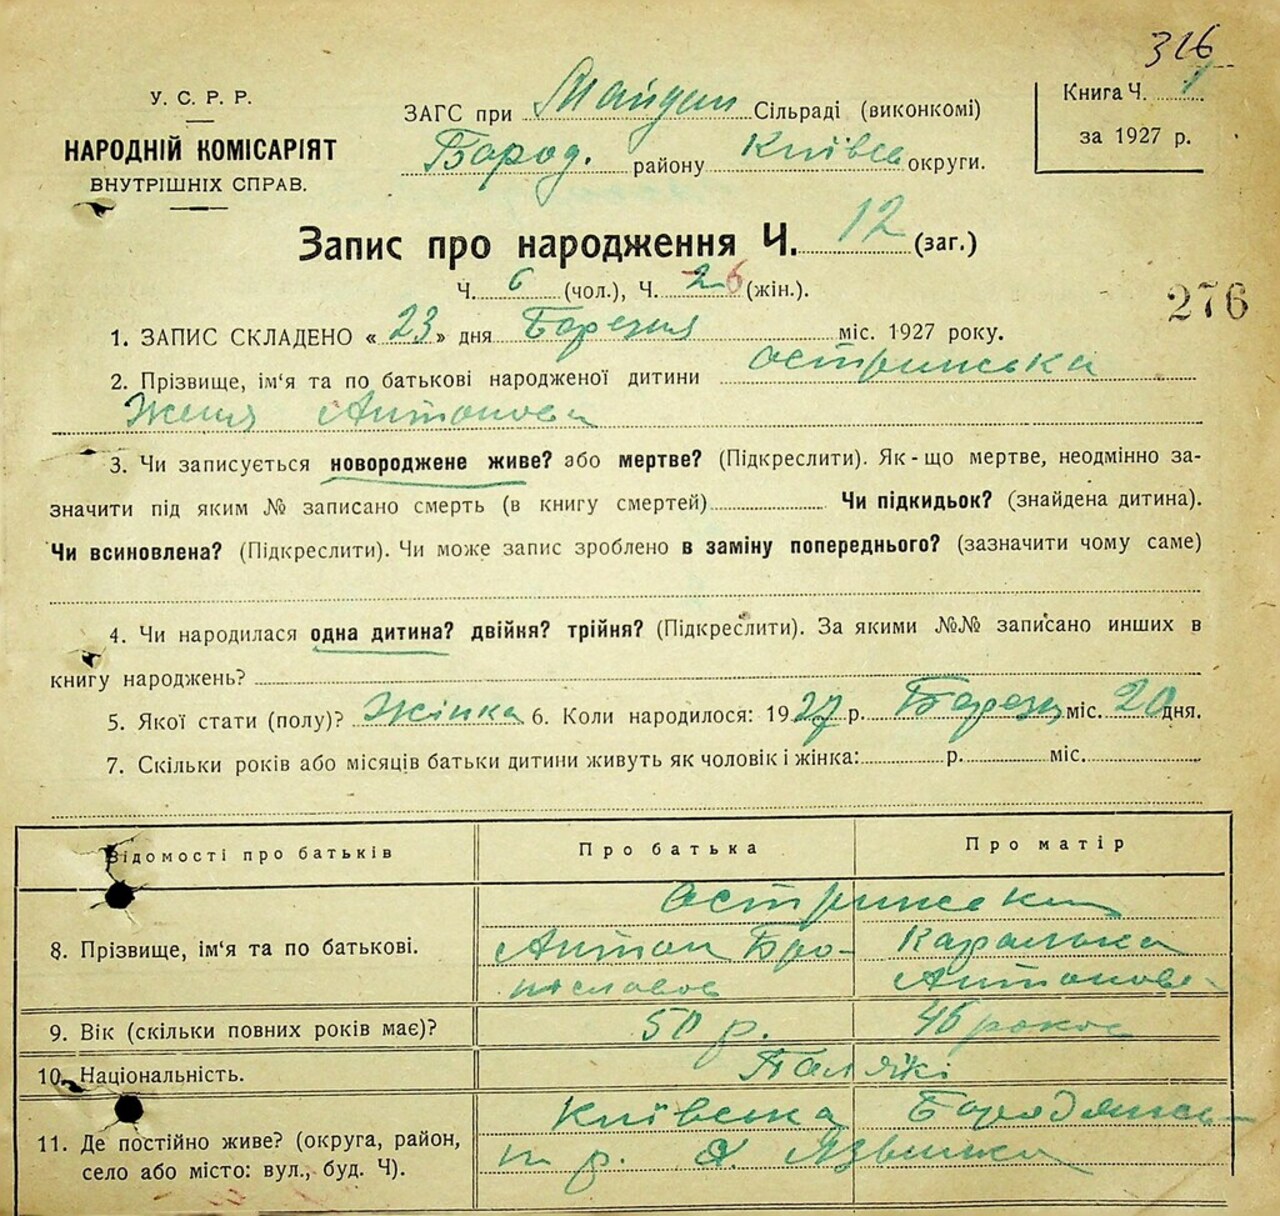 316
У. С. Р. Р.
НАРОДНІЙ КОМІСАРІЯТ
ВНУТРІШНІХ СПРАВ.
ЗАГС при Майдан Сільраді (виконкомі)
Бород. району Київсь округи.
Книга Ч. 1
за 1927 р.
Запис про народження Ч. 12 (заг.)
Ч. 6 (чол.), Ч. 6 (жін.).
276
1. ЗАПИС СКЛАДЕНО « 23 » дня Березня міс. 1927 року.
2. Прізвище, ім'я та по батькові народженої дитини Остринська
Женя Антонова
3. Чи записується новороджене живе? або мертве? (Підкреслити). Як-що мертве, неодмінно за-
значити під яким № записано смерть (в книгу смертей) Чи підкидьок? (знайдена дитина).
Чи всиновлена? (Підкреслити). Чи може запис зроблено в заміну попереднього? (зазначити чому саме)
4. Чи народилася одна дитина? двійня? трійня? (Підкреслити). За якими №№ записано инших в
книгу народжень?
5. Якої стати (полу)? Жінка 6. Коли народилося: 1927 р. Березня міс. 20 дня.
7. Скільки років або місяців батьки дитини живуть як чоловік і жінка: р. міс.
Відомості про батьків Про батька Про матір
Остринськи
8. Прізвище, ім'я та по батькові. Антон Бро- Каралька
ниславов Антонова
9. Вік (скільки повних років має)? 50 р. 46 роков
10. Національність. Паляки
11. Де постійно живе? (округа, район,
село або місто: вул., буд. Ч). Київська Бородянсь-
р. Язвинка